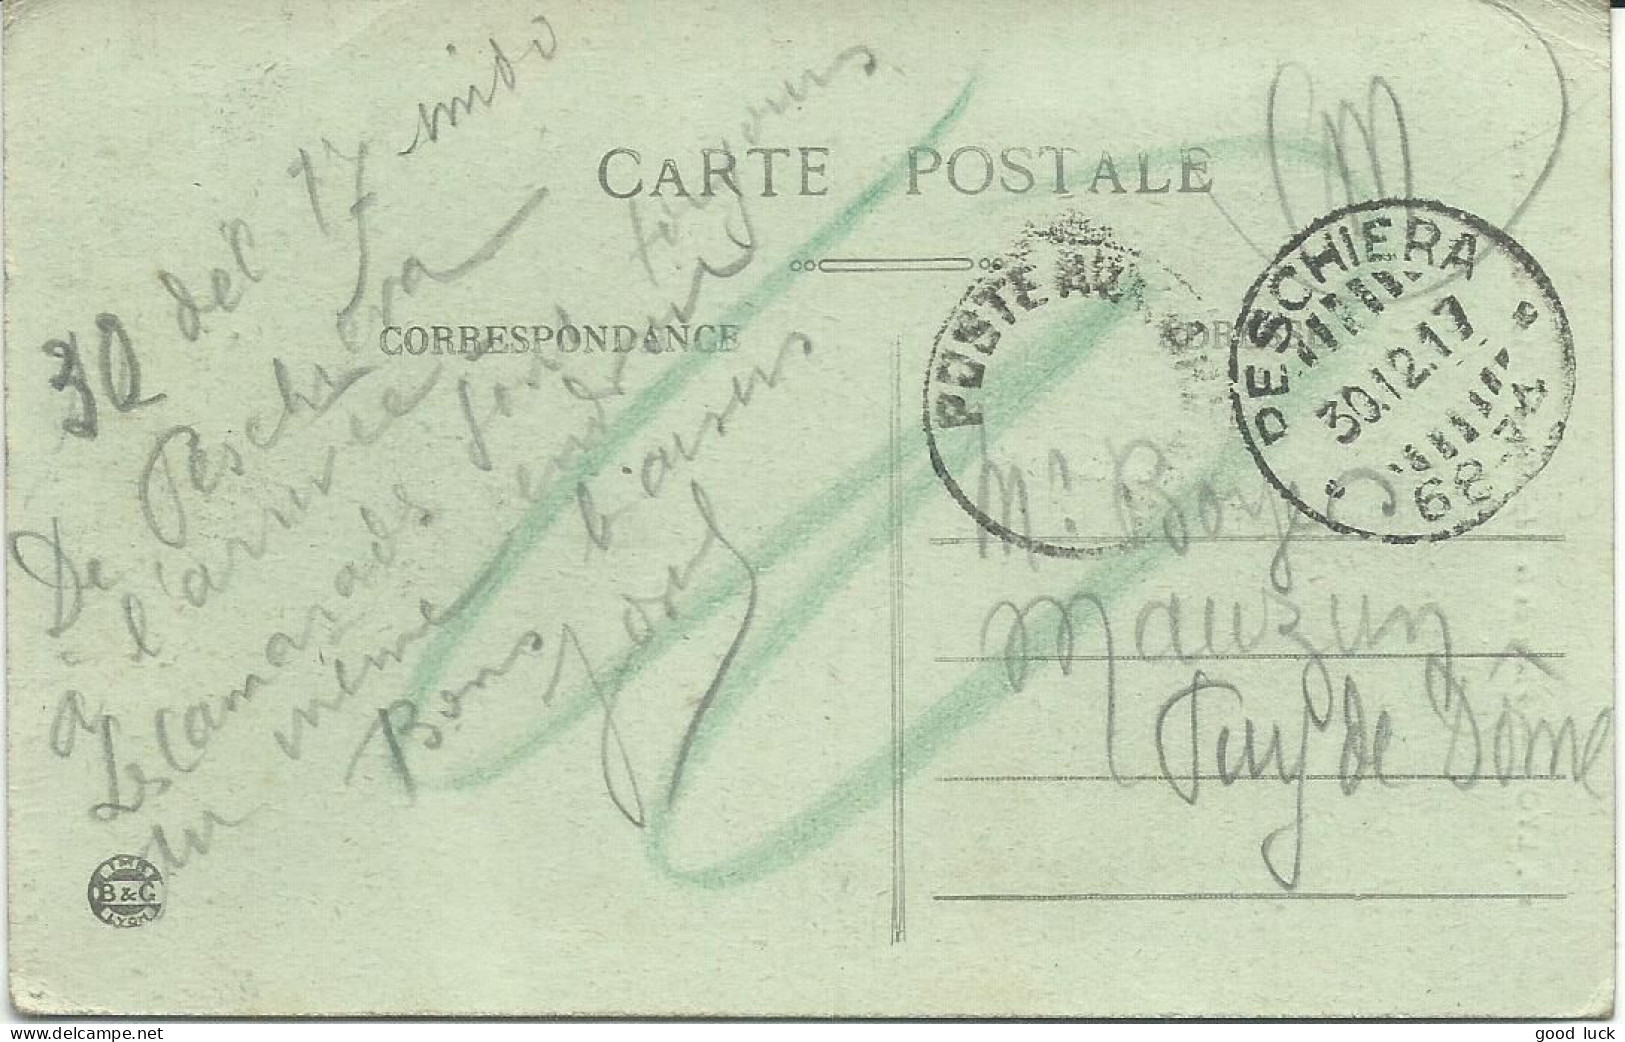 CARTE POSTALE
CORRESPONDANCE
30 dec 17 mido
De Peschiera
à l'arrivée
Les Camarades sont toujours
au même
Bons baisers
POSTE AU
PESCHIERA
30.12.17
68
Mr. Boyer
Mauzun
Puy de Dôme
IMP.
B & G
LYON
www.delcampe.net
good_luck